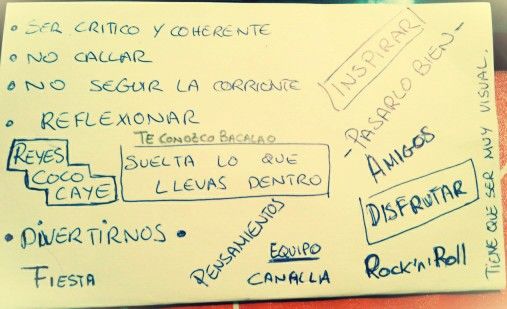 • SER CRITICO Y COHERENTE
• NO CALLAR
• NO SEGUIR LA CORRIENTE
• REFLEXIONAR
TE CONOZCO BACALAO
REYES
COCO
CAYE
SUELTA LO QUE
LLEVAS DENTRO
• DIVERTIRNOS •
FIESTA
PENSAMIENTOS
EQUIPO
CANALLA
INSPIRAR
- PASARLO BIEN -
AMIGOS
DISFRUTAR
Rock'n'Roll
TIENE QUE SER MUY VISUAL.